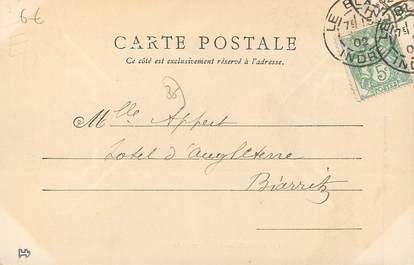 6€
E
CARTE POSTALE
Ce côté est exclusivement réservé à l'adresse.
LE BLANC
02
INDRE
5c
35
Mlle Appert
Hotel d'Angleterre
Biarritz